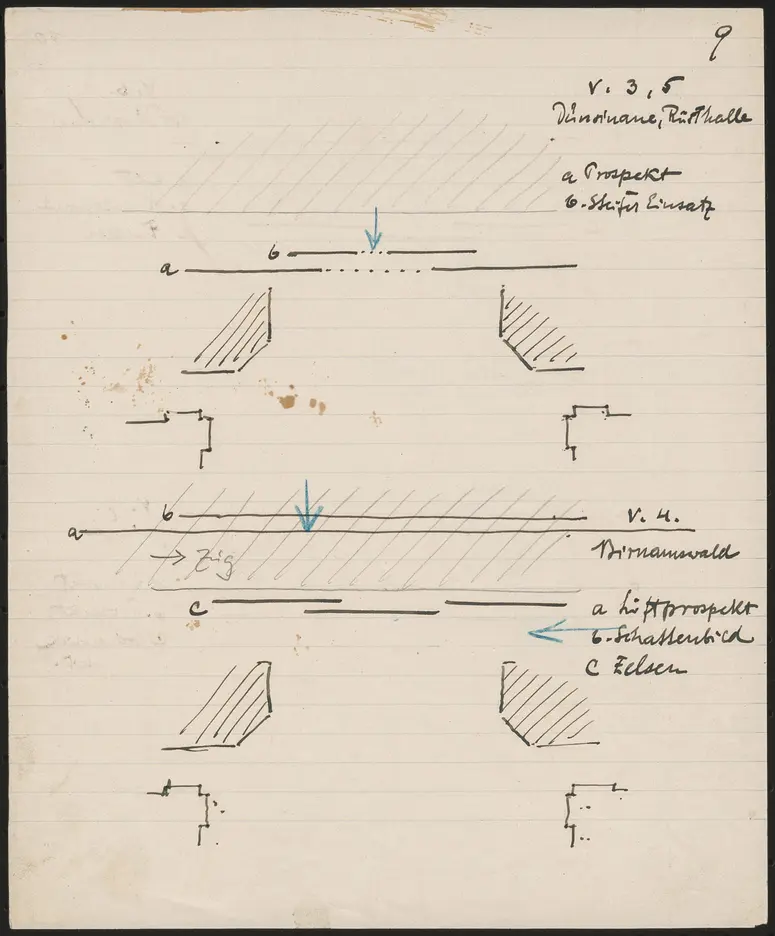 9
V. 3, 5
Dunsinane, Rüsthalle
a Prospekt
b. Steifer Einsatz
b
a
b
a
V. 4.
Birnamswald
→ Zug
c
a Luftprospekt
b. Schattenbild
c Felsen